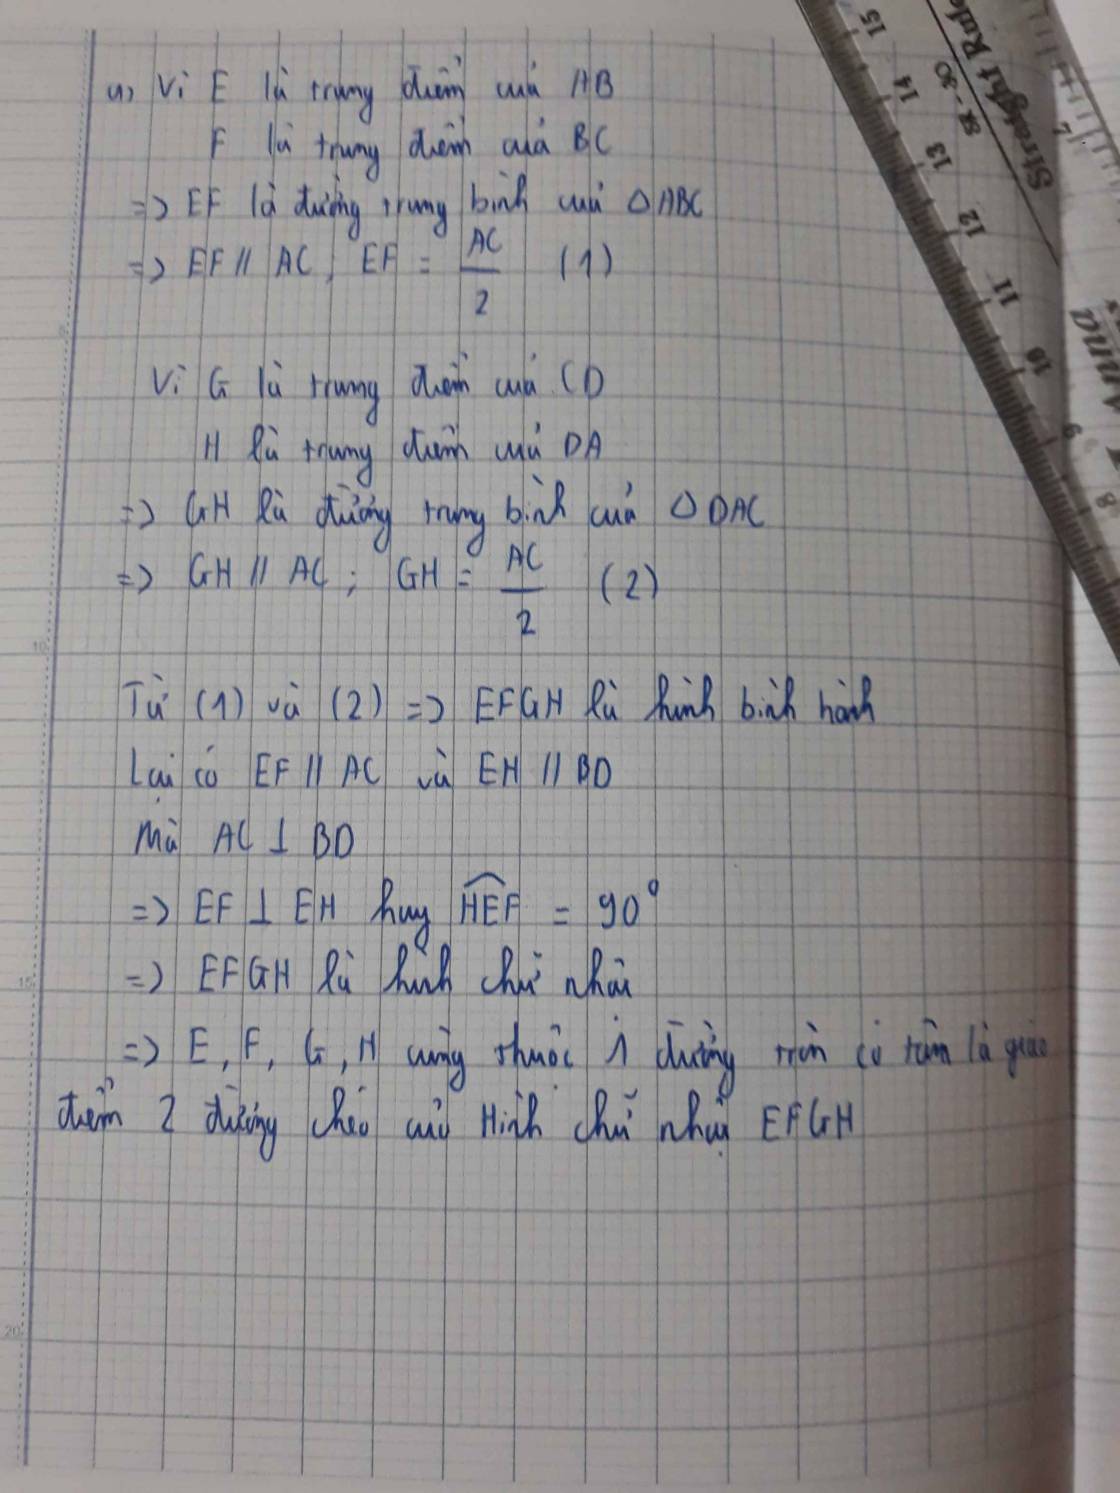 a, Vì E là trung điểm của AB
F là trung điểm của BC
=> EF là đường trung bình của △ABC
=> EF // AC, EF = AC/2 (1)
Vì G là trung điểm của CD
H là trung điểm của DA
=> GH là đường trung bình của △DAC
=> GH // AC ; GH = AC/2 (2)
Từ (1) và (2) => EFGH là hình bình hành
Lại có EF // AC và EH // BD
Mà AC ⊥ BD
=> EF ⊥ EH hay \widehat{HEF} = 90°
=> EFGH là hình chữ nhật
=> E, F, G, H cùng thuộc 1 đường tròn có tâm là giao
điểm 2 đường chéo của Hình chữ nhật EFGH
15
14
13
12
11
10
9
8
SR-30
Straight Rule
10
15
20